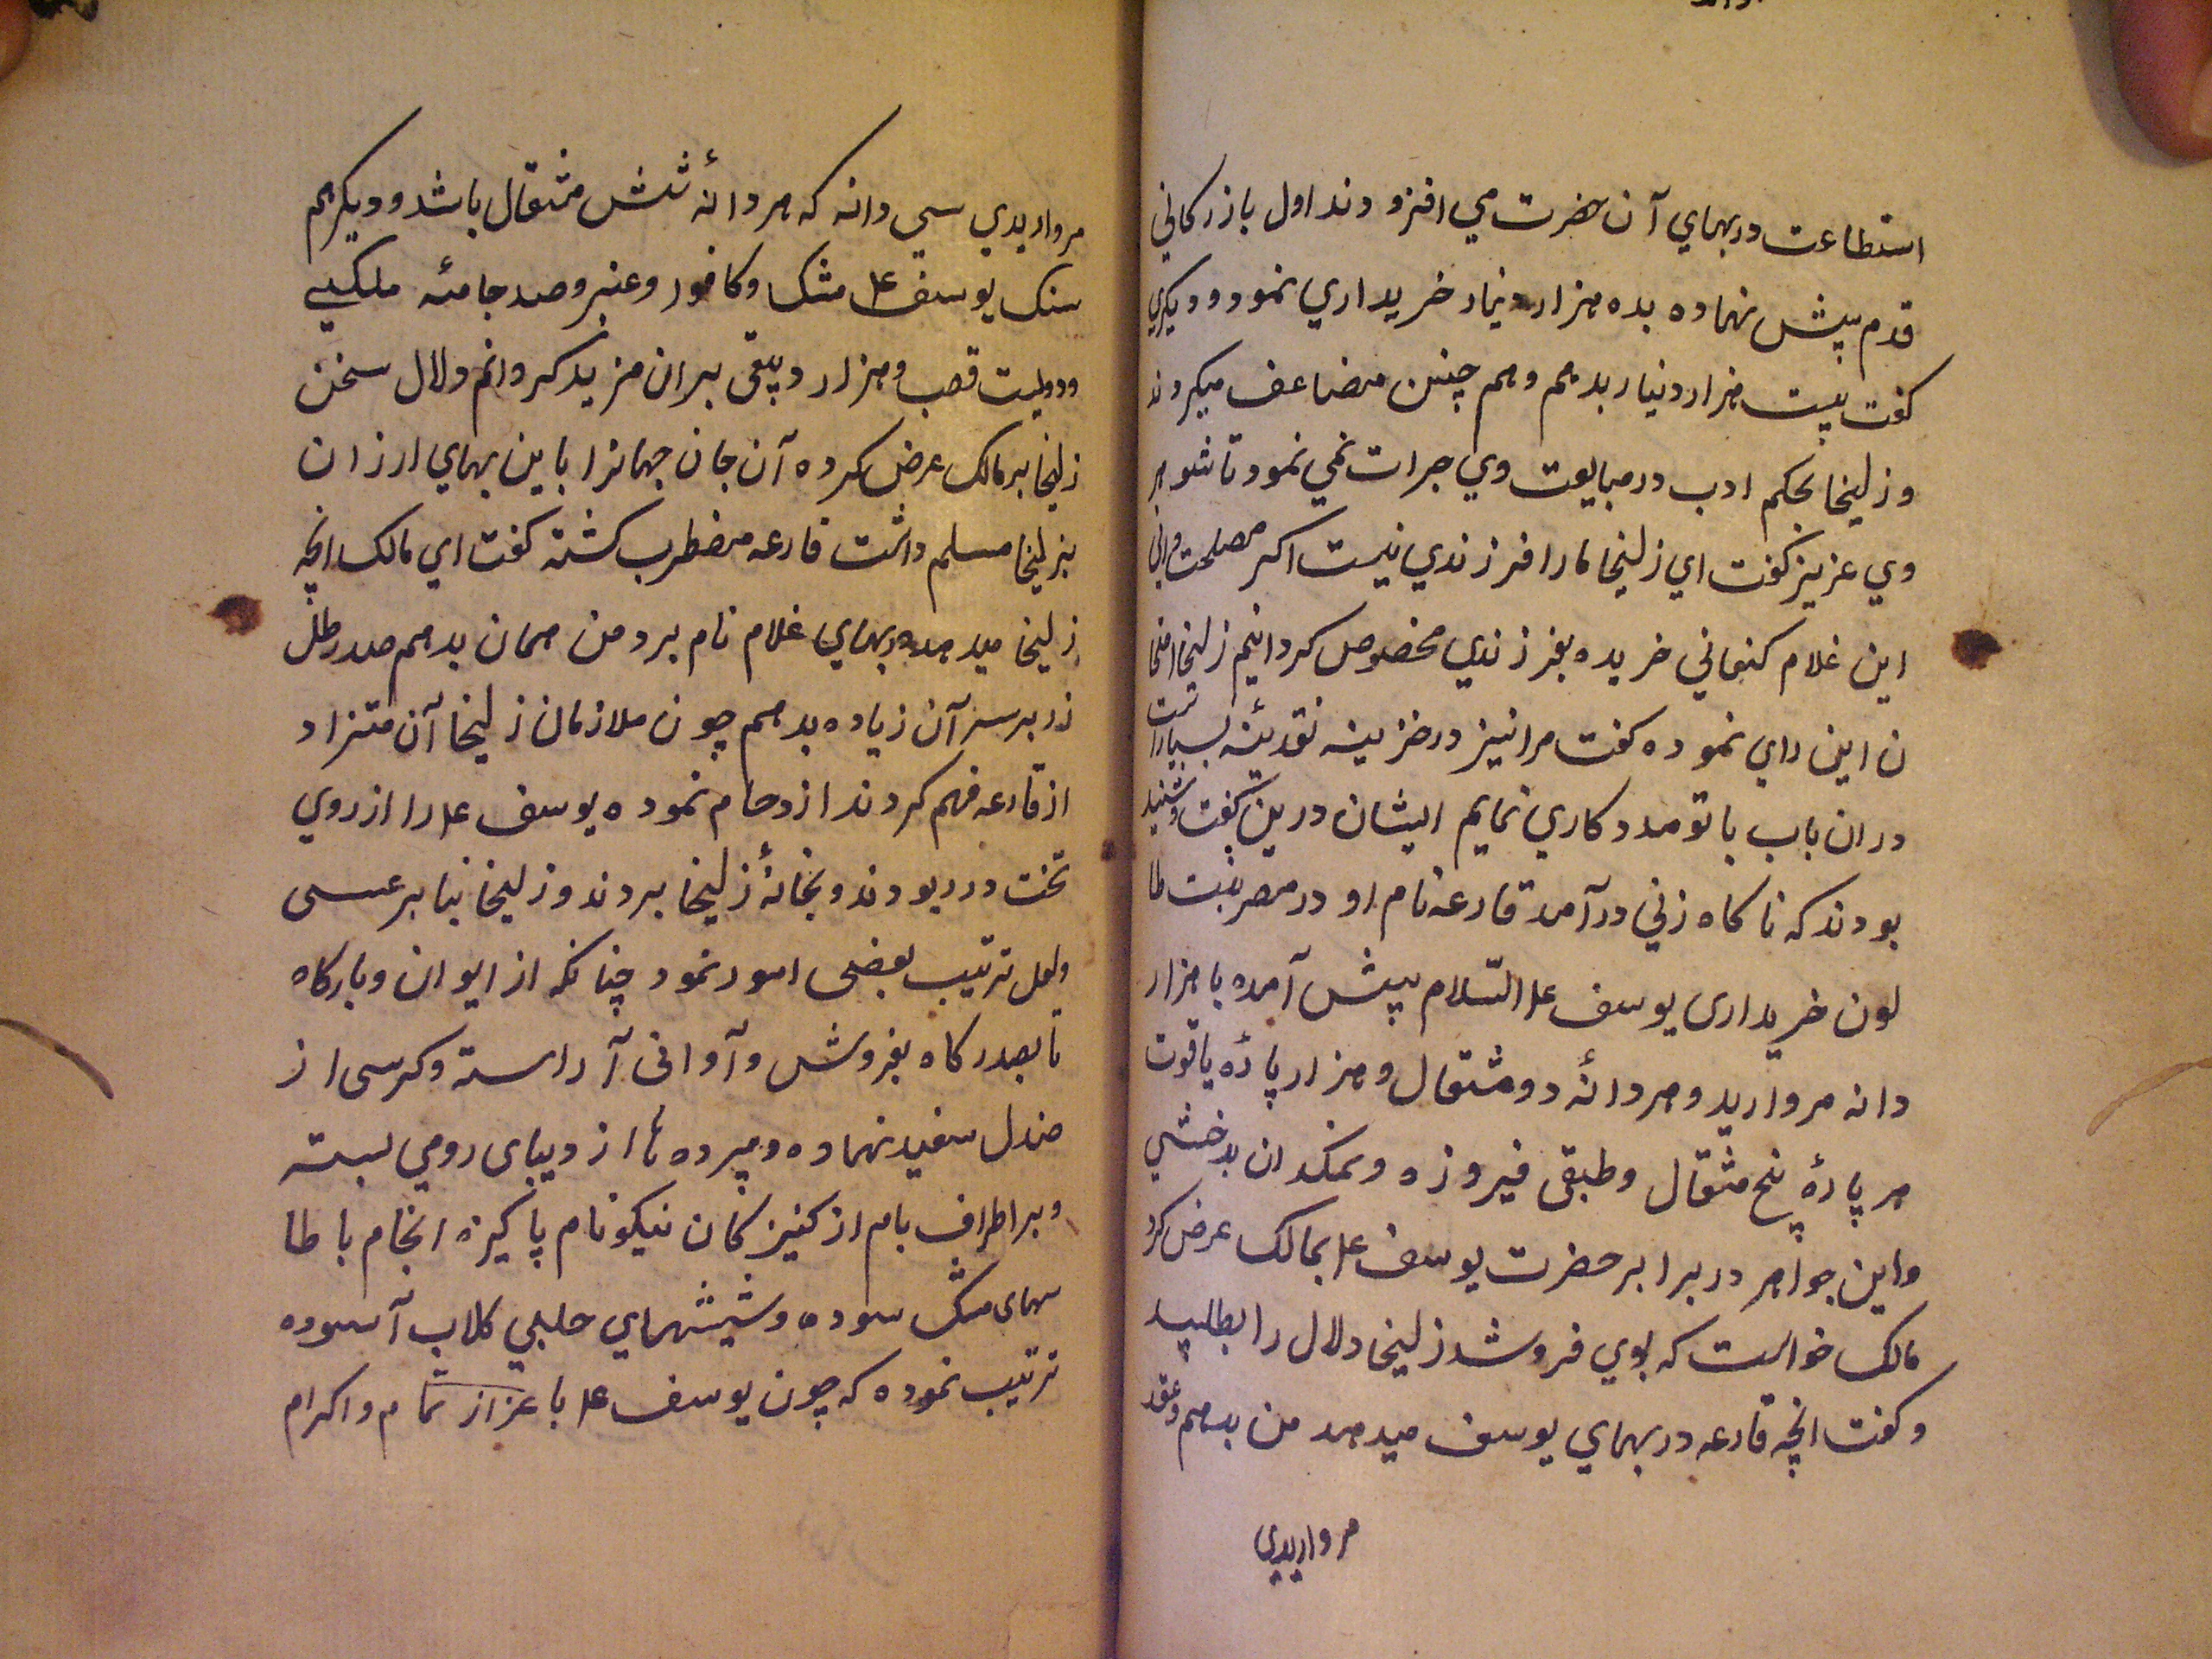 استطاعت در بهاي آن حضرت مي افزودند اول بازركاني
قدم پيش نهاده بده هزار دينار خريداري نمود و ديكري
كفت بيست هزار دينار بدهم و هم چنين مضاعف ميكردند
و زليخا بحكم ادب در مبايعت وي جرات نمي نمود تا شوهر
وي عزيز كفت اي زليخا ما را فرزندي نيست اكر مصلحت داني
اين غلام كنعاني خريده بفرزندي مخصوص كردانيم زليخا
ن اين راي نموده كفت مرا نيز در خزينه نقدينه بسيار است
دران باب با تو مددكاري نمايم ايشان درين كفت و شنيد
بودند كه ناكاه زني درآمد قارعه نام او در مصر بنت طا
لون خريداری يوسف ع السّلام پيش آمده با هزار
دانه مرواريد و هر دانهٔ دو مثقال و هزار پارهٔ ياقوت
هر پارهٔ پنج مثقال و طبقی فيروزه و نمكدان بدخشي
و اين جواهر در برابر حضرت يوسف ع بمالک عرض كرد
مالک خواست كه بوي فروشد زليخا دلال را بطلبيد
و كفت انچه قارعه در بهاي يوسف ميدهد من بدهم و عقد
مرواريدي
مرواريدي سي دانه كه هر دانهٔ شش مثقال باشد و ديكر هم
سنك يوسف ع مشك و كافور و عنبر و صد جامهٔ ملكيی
و دويست قصب و هزار دبيقی بران مزيد كردانم دلال سخن
زليخا بر مالک عرض كرده آن جان جهانرا باين بهاي ارزان
بزليخا مسلم داشت قارعه مضطرب كشته كفت اي مالک انچه
زليخا ميدهد در بهاي غلام نام برد من همان بدهم صد رطل
زر بر سر آن زياده بدهم چون ملازمان زليخا آن متزاد
از قارعه فهم كردند ازدحام نموده يوسف ع را از روي
تخت در ربودند و بخانهٔ زليخا بردند و زليخا بنا بر عسی
و لعل ترتيب بعضی امور نمود چنانكه از ايوان و باركاه
تا بصدر كاه بفروش و آوانی آراسته و كرسی از
صندل سفيد نهاده و پرده ها از ديبای رومي بسته
و بر اطراف بام از كنيزكان نيكو نام پاكيزه انجام با طا
سهای مشک سوده و شيشهاي حلبي كلاب آسوده
ترتيب نموده كه چون يوسف ع با عزاز تمام و اكرام